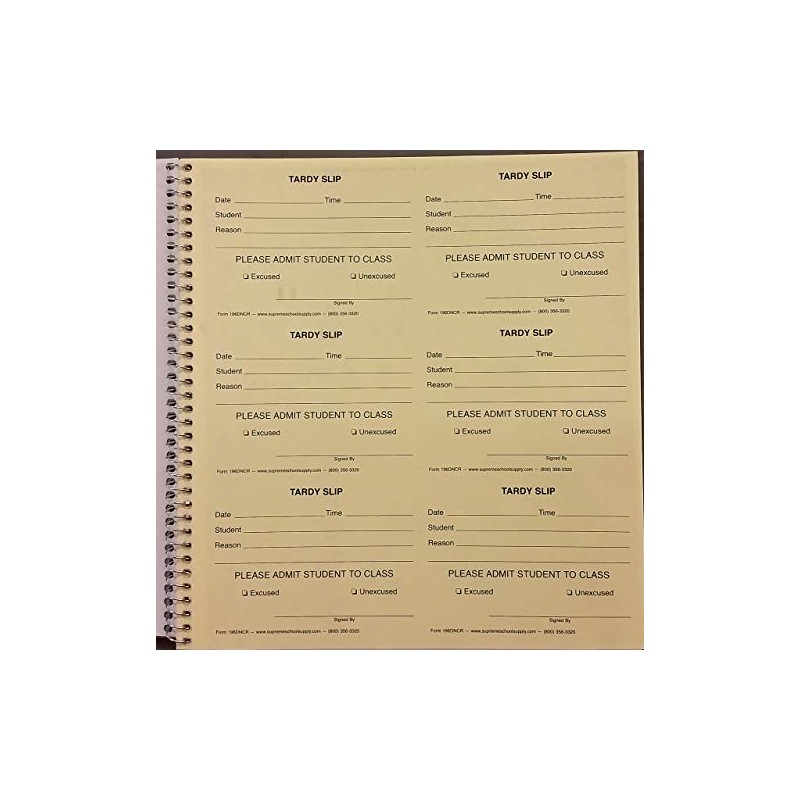 TARDY SLIP
Date Time
Student
Reason
PLEASE ADMIT STUDENT TO CLASS
❏ Excused ❏ Unexcused
Signed By
Form 196DNCR — www.supremeschoolsupply.com — (800) 356-3320
TARDY SLIP
Date Time
Student
Reason
PLEASE ADMIT STUDENT TO CLASS
❏ Excused ❏ Unexcused
Signed By
Form 196DNCR — www.supremeschoolsupply.com — (800) 356-3320
TARDY SLIP
Date Time
Student
Reason
PLEASE ADMIT STUDENT TO CLASS
❏ Excused ❏ Unexcused
Signed By
Form 196DNCR — www.supremeschoolsupply.com — (800) 356-3320
TARDY SLIP
Date Time
Student
Reason
PLEASE ADMIT STUDENT TO CLASS
❏ Excused ❏ Unexcused
Signed By
Form 196DNCR — www.supremeschoolsupply.com — (800) 356-3320
TARDY SLIP
Date Time
Student
Reason
PLEASE ADMIT STUDENT TO CLASS
❏ Excused ❏ Unexcused
Signed By
Form 196DNCR — www.supremeschoolsupply.com — (800) 356-3320
TARDY SLIP
Date Time
Student
Reason
PLEASE ADMIT STUDENT TO CLASS
❏ Excused ❏ Unexcused
Signed By
Form 196DNCR — www.supremeschoolsupply.com — (800) 356-3320